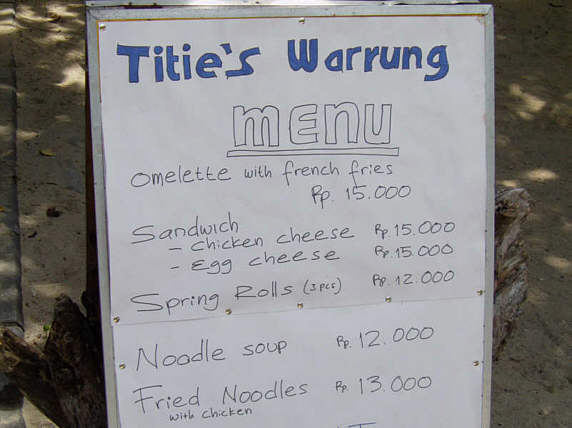 Titie's Warrung
MENU
Omelette with french fries
Rp. 15.000
Sandwich
- Chicken cheese Rp 15.000
- Egg cheese Rp. 15.000
Spring Rolls (3pcs) Rp. 12.000
Noodle soup Rp. 12.000
Fried Noodles Rp 13.000
with chicken